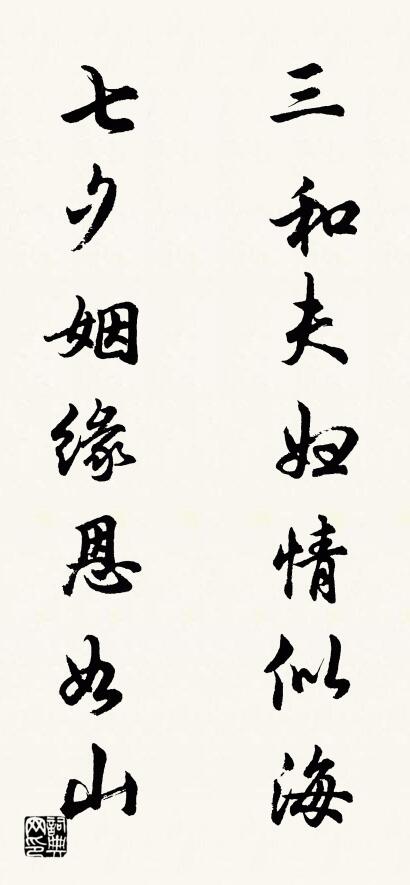 三和夫妇情似海
七夕姻缘恩如山
词典网印